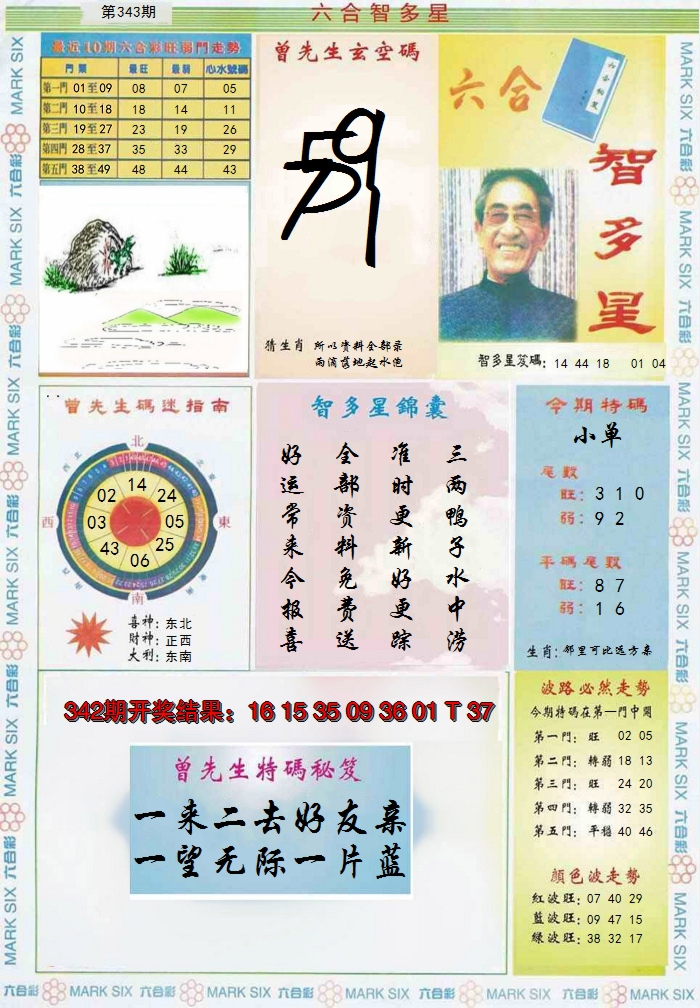 第343期
六合智多星
最近10期六合彩旺弱門走勢
門類 最旺 最弱 心水號碼
第一門 01至09 08 07 05
第二門 10至18 18 14 11
第三門 19至27 23 19 26
第四門 28至37 35 33 29
第五門 38至49 48 44 43
曾先生玄空碼
猜生肖 所以资料全部录
雨滴落地起水泡
六合
智多星
智多星笈碼: 14 44 18 01 04
曾先生碼迷指南
北
西
東
南
14
24
05
25
06
43
03
02
喜神: 东北
財神: 正西
大利: 东南
智多星錦囊
三两鸭子水中涝
准时更新好更踪
全部资料免费送
好运常来今报喜
今期特碼
小单
尾數
旺: 3 1 0
弱: 9 2
平碼尾數
旺: 8 7
弱: 1 6
生肖: 邻里可比远方亲
342期开奖结果: 16 15 35 09 36 01 T 37
曾先生特碼秘笈
一来二去好友亲
一望无际一片蓝
波路必然走勢
今期特碼在第一門中開
第一門: 旺 02 05
第二門: 轉弱 18 13
第三門: 旺 24 20
第四門: 轉弱 32 35
第五門: 平穩 40 46
顔色波走勢
紅波旺: 07 40 29
藍波旺: 09 47 15
綠波旺: 38 32 17
MARK SIX 六合彩 MARK SIX 六合彩 MARK SIX 六合彩 MARK SIX 六合彩 MARK SIX